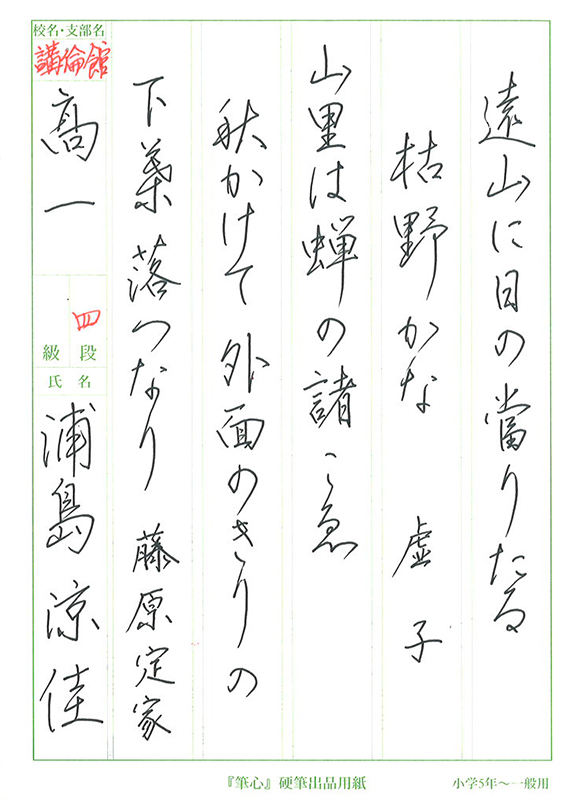 遠山に日の當りたる
枯野かな　虚子
山里は蝉の諸こゑ
秋かけて外面のきりの
下葉落つなり　藤原定家
校名・支部名
講倫館
高一
四
級 段
氏 名
浦島涼佳
『筆心』硬筆出品用紙
小学5年〜一般用